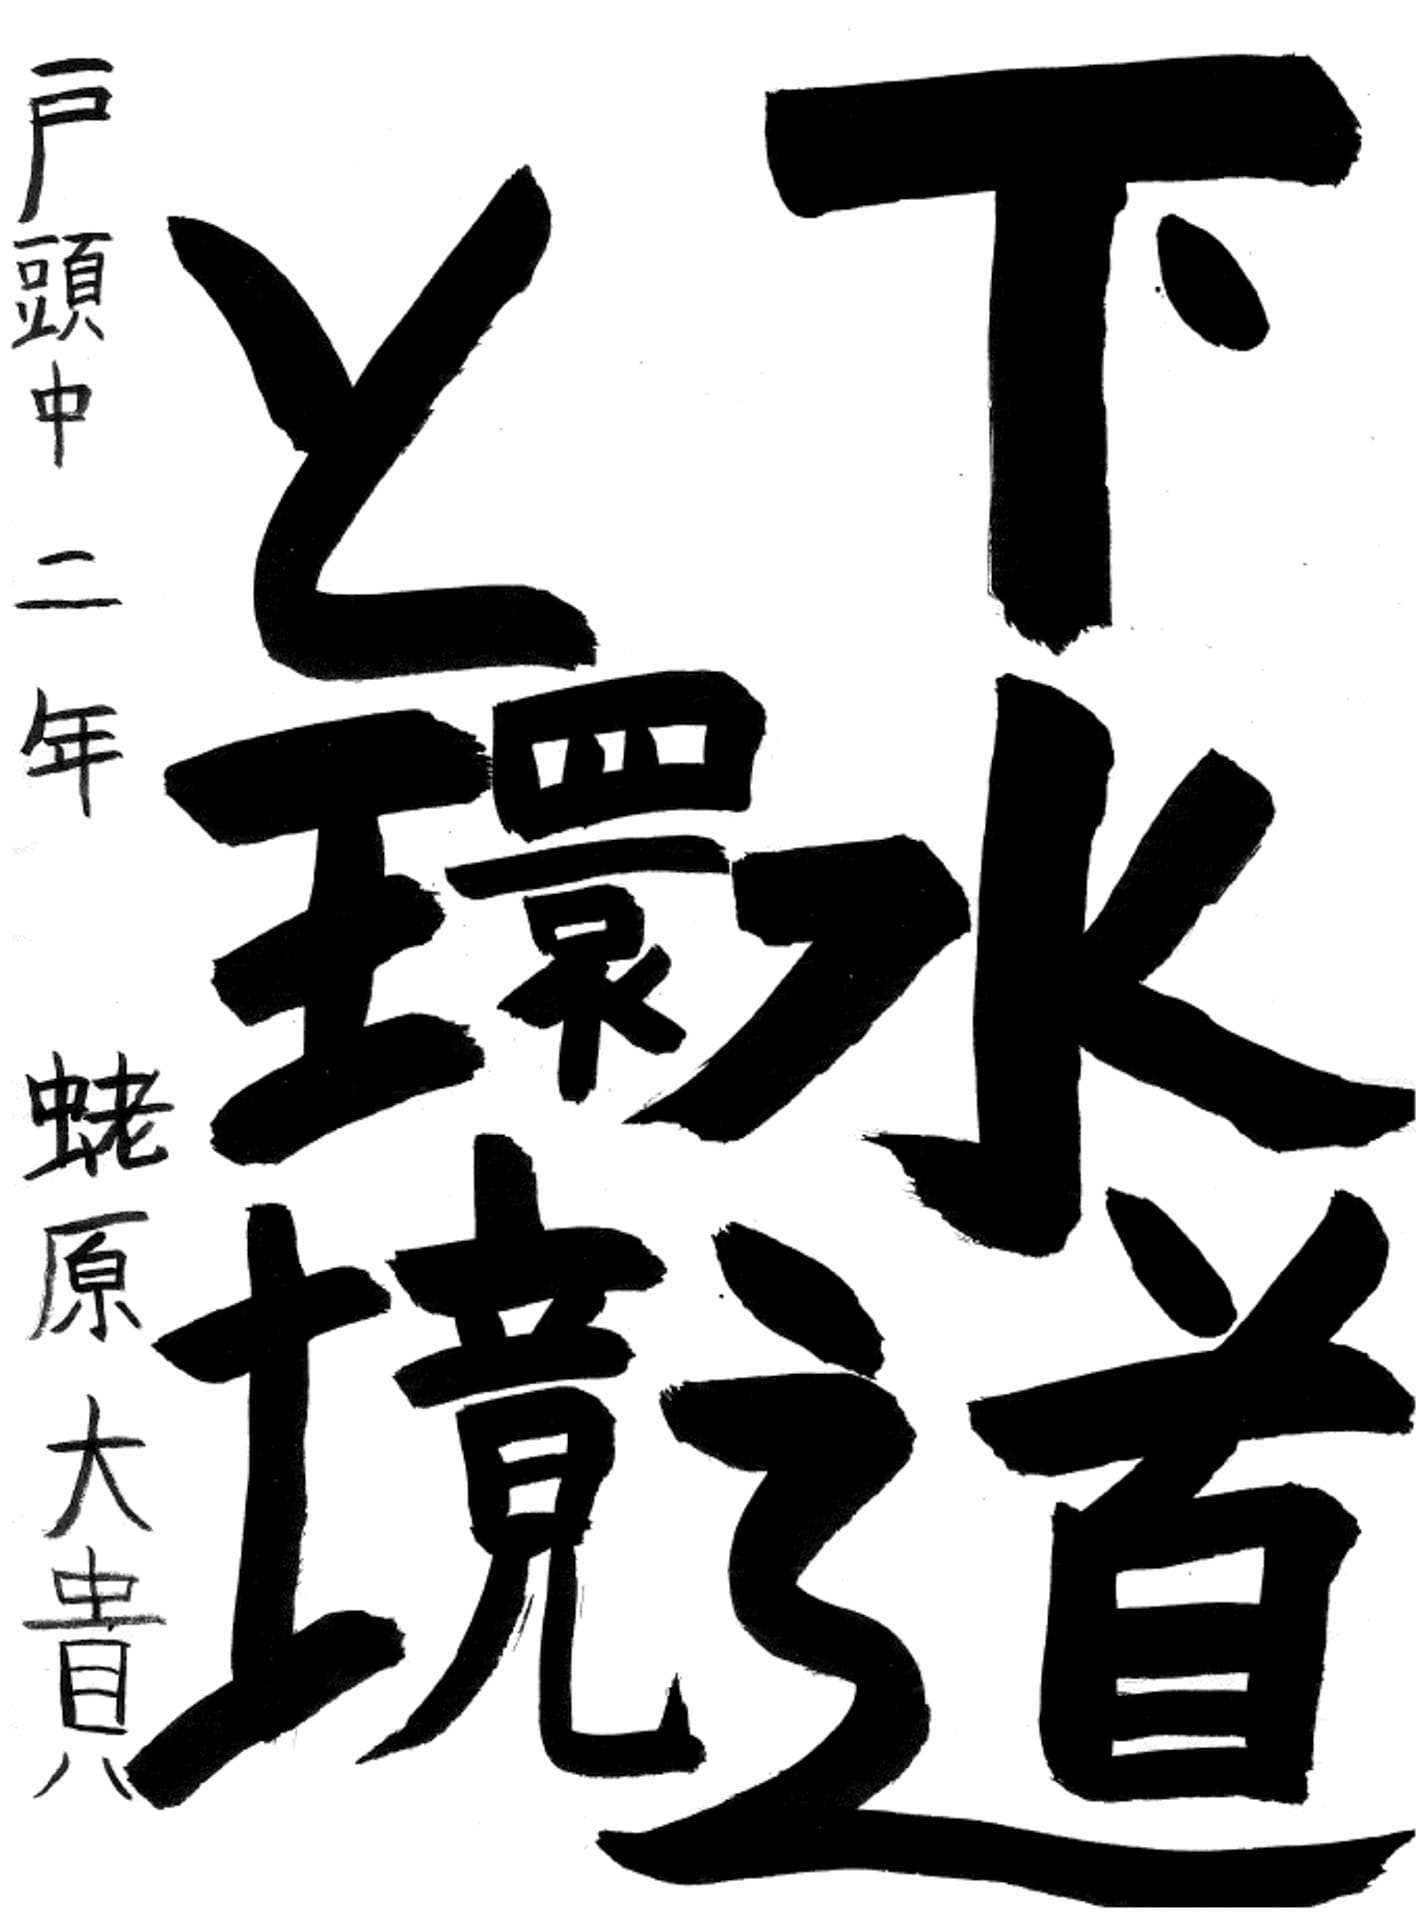 下水道
と環境
戸頭中二年 蛯原大貴